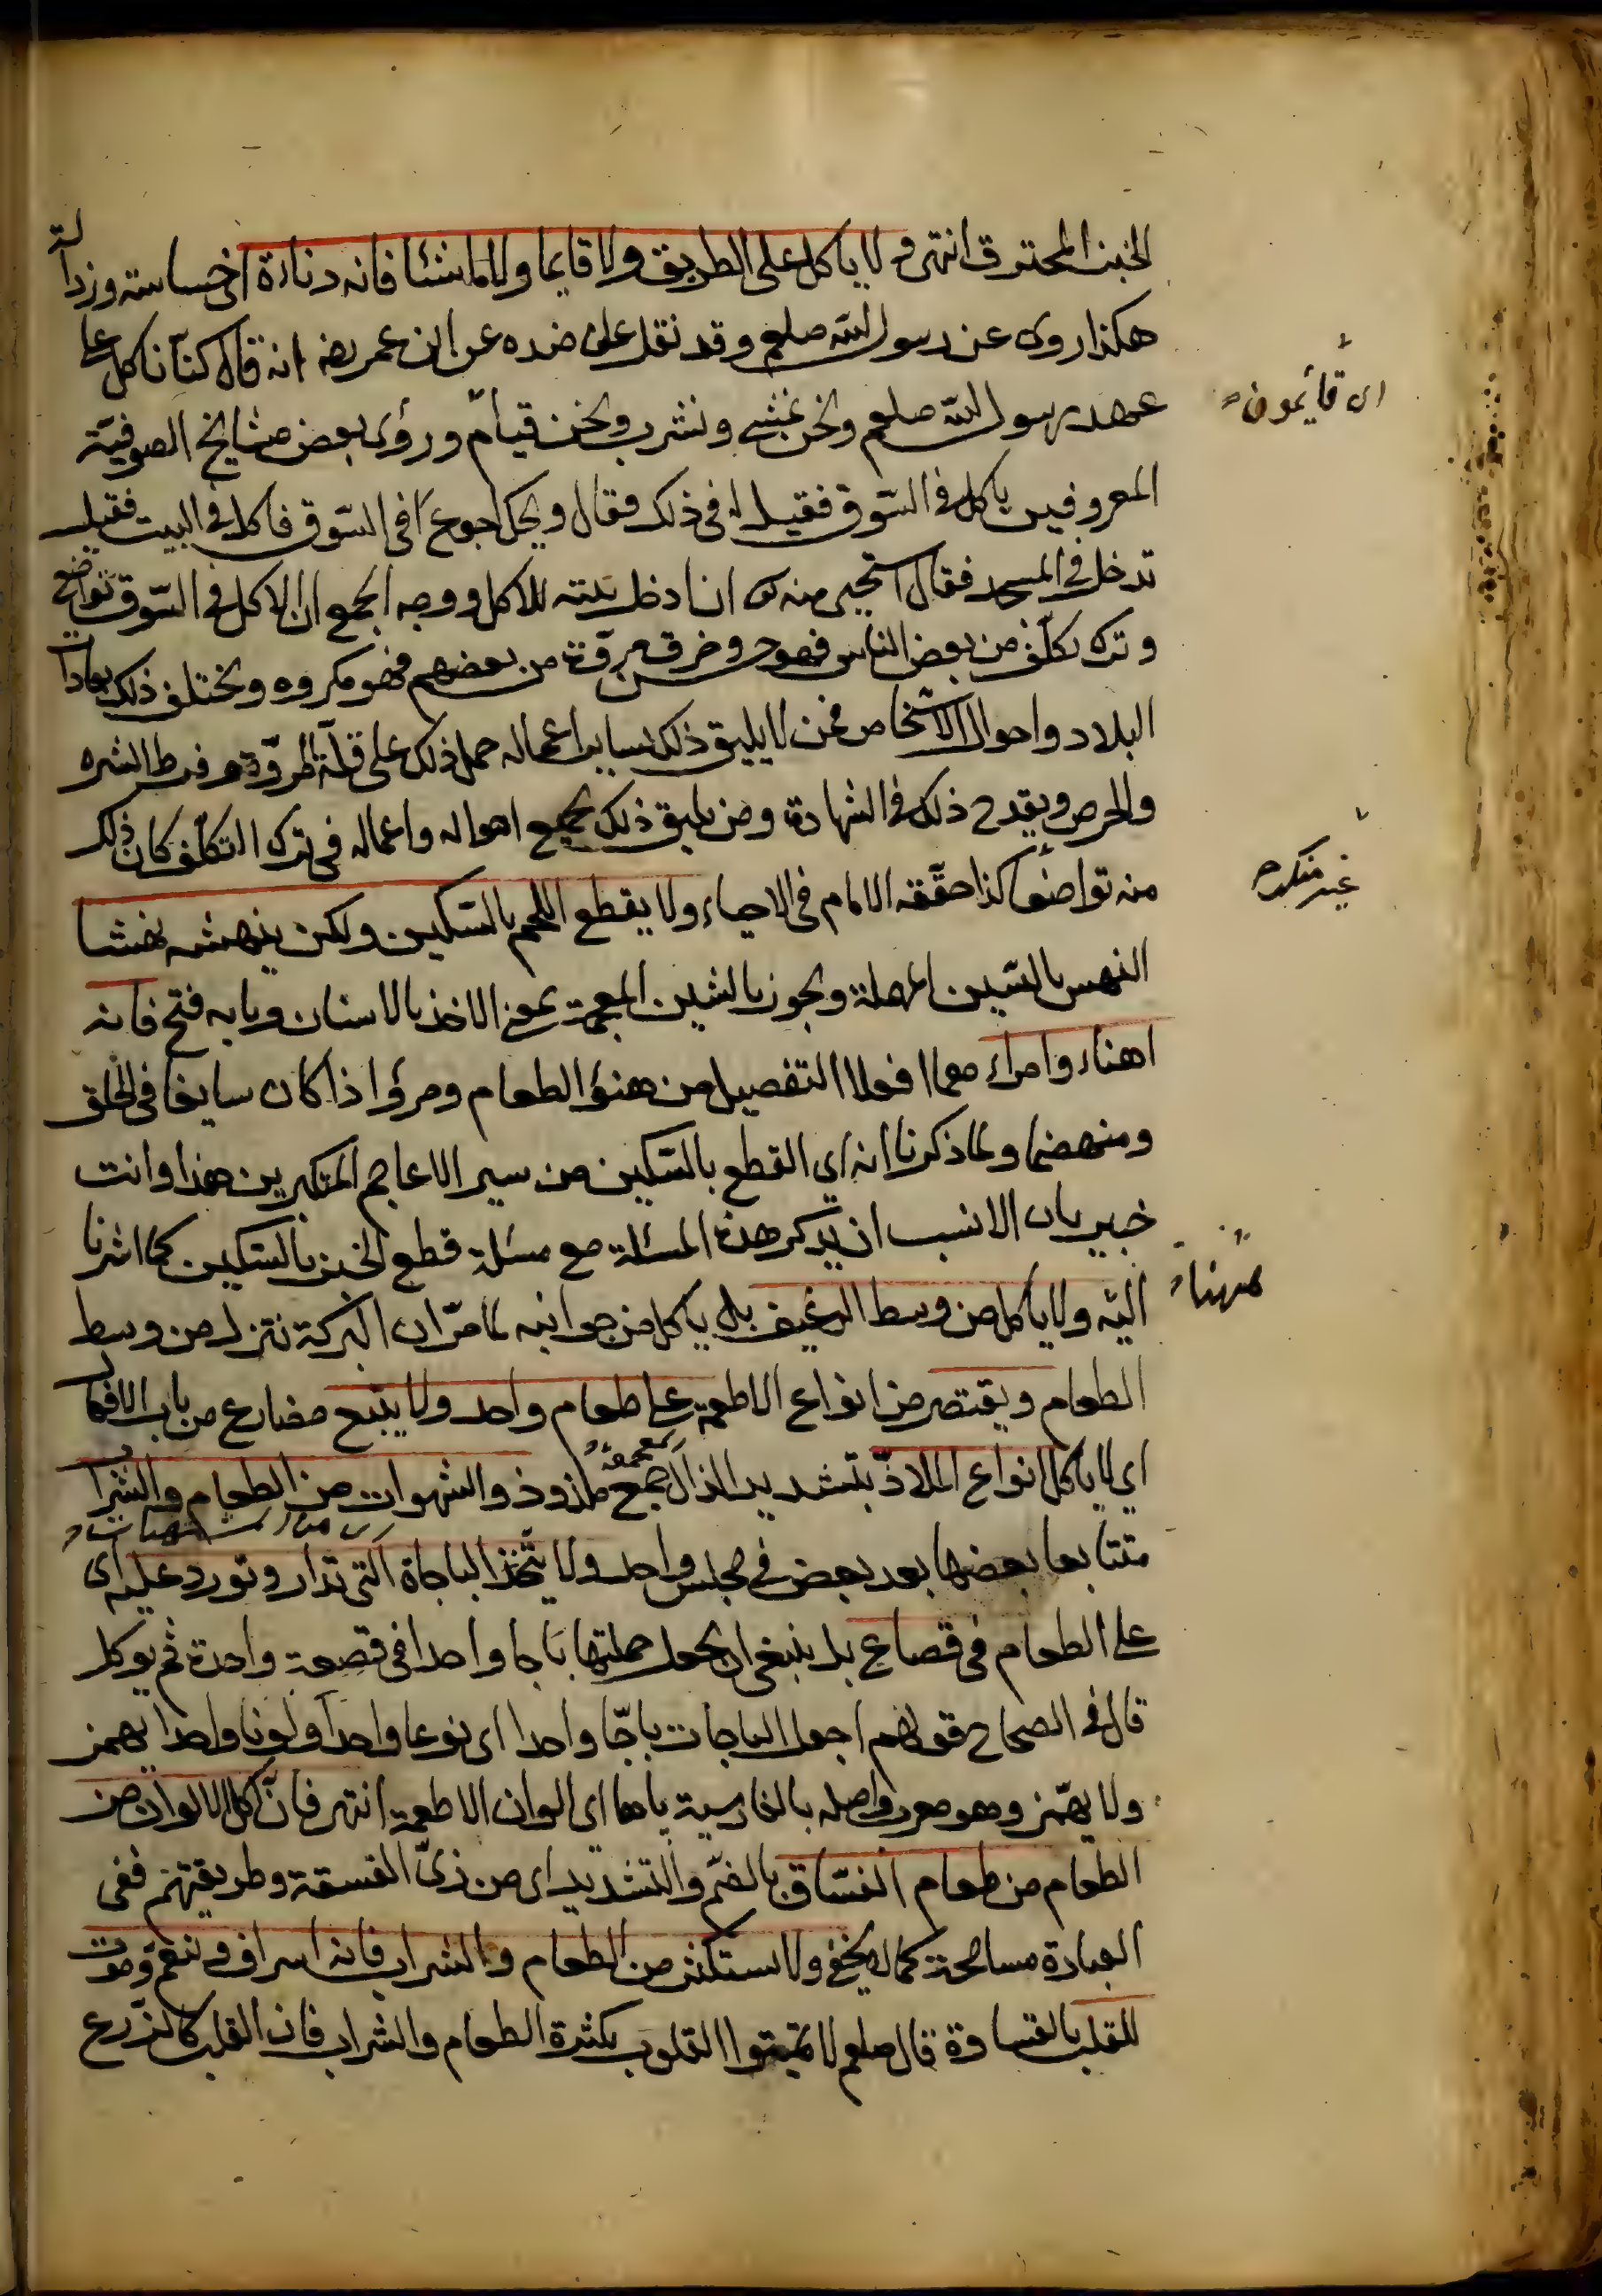 الخبز المحترق انتهى ولا ياكل على الطريق ولا قايما ولا ماشيا فانه دناءة اى خساسته ورذالة
هكذا روى عن رسول الله صلعم وقد نقل على ضده عن ابن عمر رضه انه قال كنا ناكل على
عهد رسول الله صلعم ونحن نمشى ونشرب ونحن قيام ورؤى بعض مشايخ الصوفية
اى قايمون
المعروفين ياكل فى السوق فقيل له فى ذلك فقال ويحك اجوع فى السوق فاكل فى البيت فقيل
تدخل فى المسجد فقال استحيى منه ان ادخل بيته للاكل ووجه الجمع ان الاكل فى السوق تواضع
وترك تكلف من بعض الناس فهو حسن وخرق مروة من بعضهم فهو مكروه ويختلف ذلك بعادات
البلاد واحوال الاشخاص فمن لا يليق ذلك بساير اعماله حمل ذلك على قلة المروة وفرط الشره
والحرص ويقدح ذلك فى الشهادة ومن يليق ذلك بجميع احواله واعماله فى ترك التكلف كان ذلك
غير منكره
منه تواضعا كذا حققه الامام فى الاحياء ولا يقطع اللحم بالسكين ولكن ينهشه نهشا
النهس بالسين المهملة ويجوز بالشين المعجمة بمعنى الاخذ بالاسنان وبابه فتح فانه
اهناء وامراء معا افعلا التفصيل من هنؤ الطعام ومرؤ اذا كان سايغا فى الحلق
ومنهضما ولما ذكرنا انه اى القطع بالسكين من سير الاعاجم المتكبرين هذا وانت
خبير بان الانسب ان يذكر هذه المسئلة مع مسئلة قطع الخبز بالسكين كما اشرنا
اليه ولا ياكل من وسط الرغيف بل ياكل من جوانبه لما مر ان البركة تنزل من وسط
الطعام ويقتصر من انواع الاطعمة على طعام واحد ولا يتبع مضارع من باب الافعال
اى لا ياكل انواع الملاذ بتشديد الذال جمع ملذوذ والشهوات من الطعام والشراب
متتابعا بعضها بعد بعض فى مجلس واحد ولا يتخذ الباجاة التى تدار وتورد عليه اى
على الطعام فى قصاع بل ينبغى ان يجعل جملتها باجا واحدا فى قصعة واحدة ثم يوكل
قال فى الصحاح قولهم اجعل الباجات باجا واحدا اى نوعا واحدا ولونا واحدا يهمز
ولا يهمز وهو معرب واصله بالفارسية باها اى الوان الاطعمة انتهى فان اكل الالوان من
الطعام من طعام الفساق بالضم والتشديد اى من زى الفسقة وطريقتهم ففى
العبارة مسامحة كما لا يخفى ولا يستكثر من الطعام والشراب فانه اسراف وتنعم وموت
للقلب بالقساوة قال صلعم لا تميتوا القلوب بكثرة الطعام والشراب فان القلب كالزرع